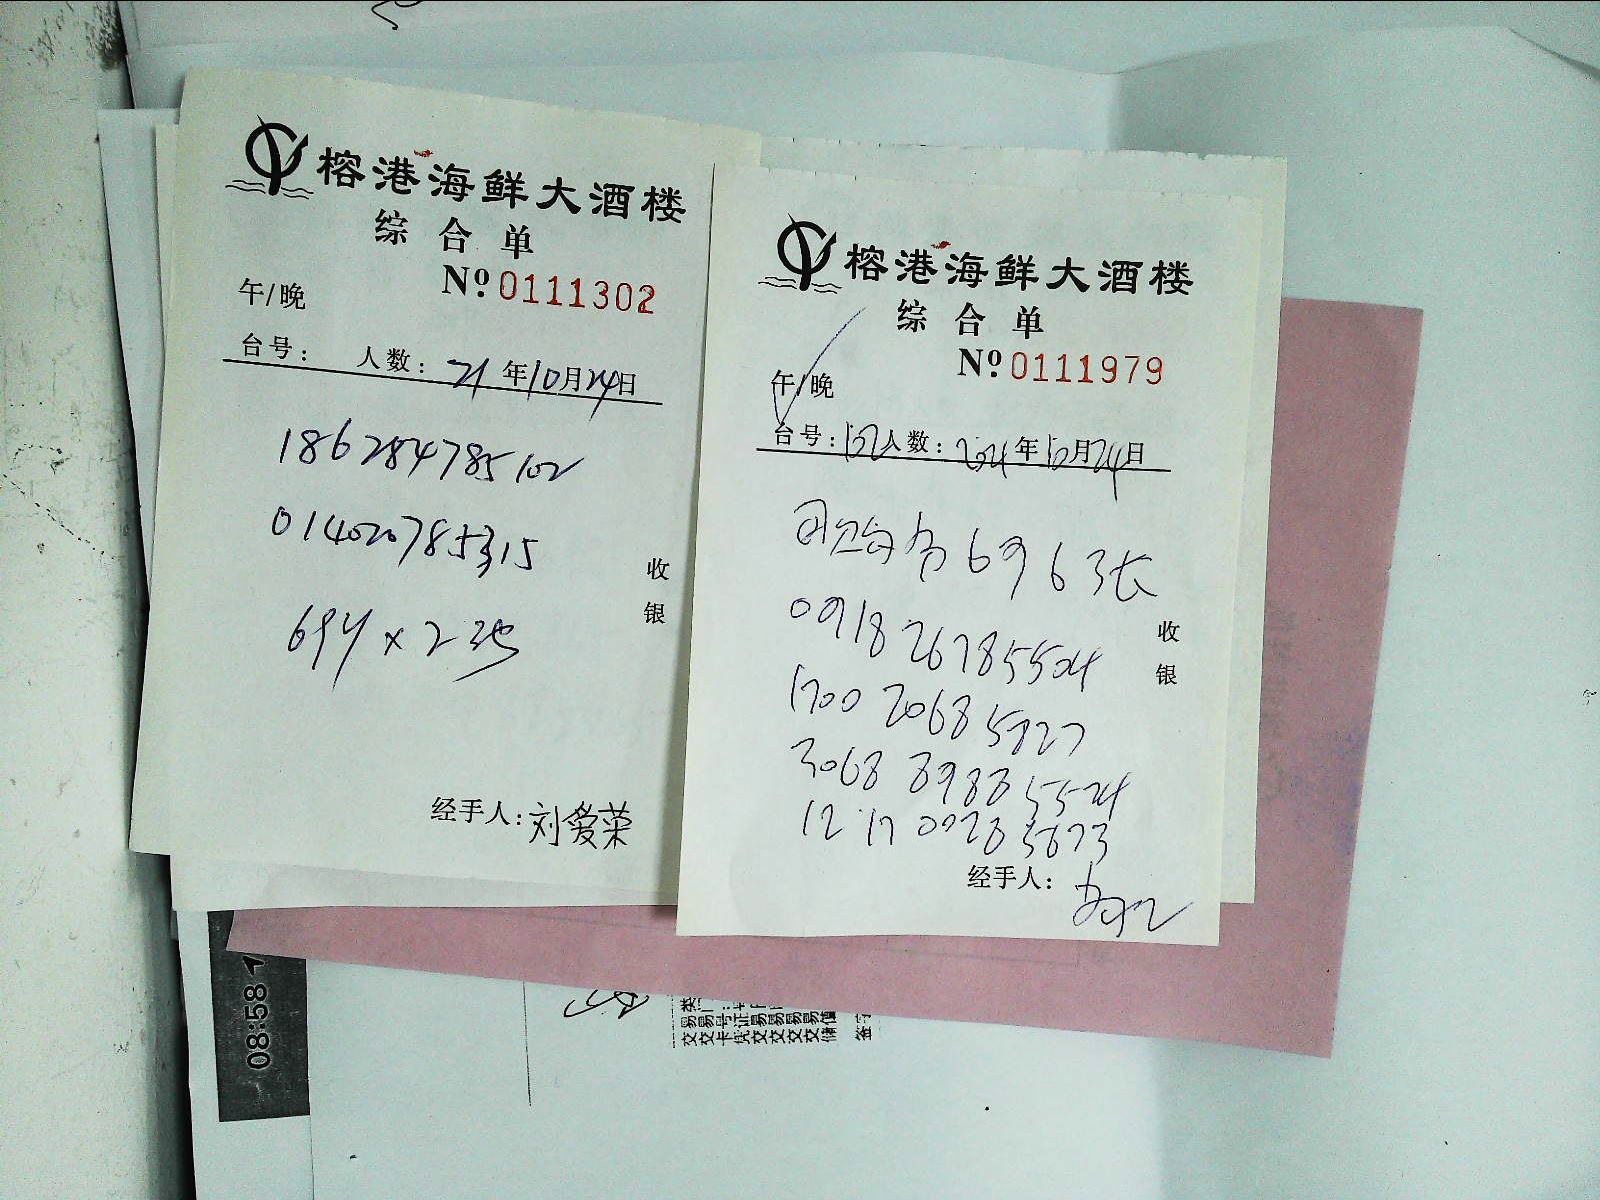 榕港海鲜大酒楼
综合单
No 0111302
午/晚
台号: 人数: 21年10月24日
186284785102
014020785315
694×2张
收银
经手人: 刘爱荣
榕港海鲜大酒楼
综合单
No 0111979
午/晚
台号: 102 人数: 2021年10月24日
69 63张
091826785504
170020685827
306889885524
121700285873
收银
经手人:
08:58